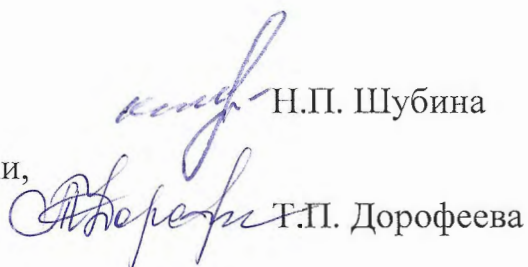 Н.П. Шубина
и,
Т.П. Дорофеева